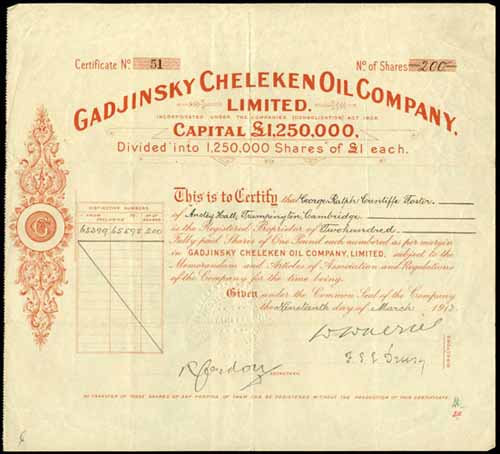 Certificate No. 51
No. of Shares 200
GADJINSKY CHELEKEN OIL COMPANY,
LIMITED.
INCORPORATED UNDER THE COMPANIES (CONSOLIDATION) ACT 1908.
CAPITAL £1,250,000.
Divided into 1,250,000 Shares of £1 each.
DISTINCTIVE NUMBERS
FROM INCLUSIVE TO No. OF SHARES
65399 65598 200
This is to Certify that George Ralph Cunliffe Foster
of Anstey Hall, Trumpington, Cambridge
is the Registered Proprietor of Two hundred
Fully paid Shares of One Pound each numbered as per margin
in GADJINSKY CHELEKEN OIL COMPANY, LIMITED, subject to the
Memorandum and Articles of Association and Regulations
of the Company for the time being.
Given under the Common Seal of the Company
the Nineteenth day of March 1913
DIRECTORS
SECRETARY
NO TRANSFER OF THESE SHARES OR ANY PORTION OF THEM CAN BE REGISTERED WITHOUT THE PRODUCTION OF THIS CERTIFICATE.